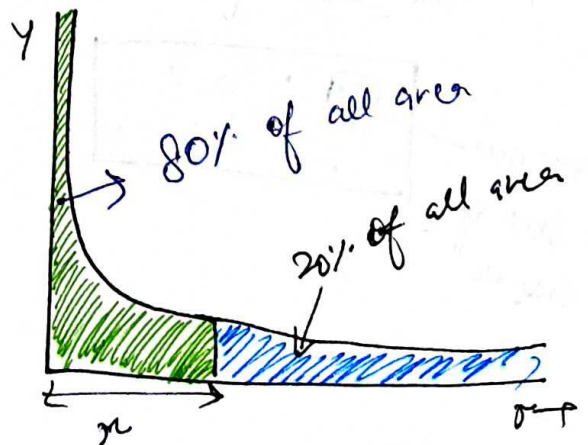 Y
80% of all area
20% of all area
x